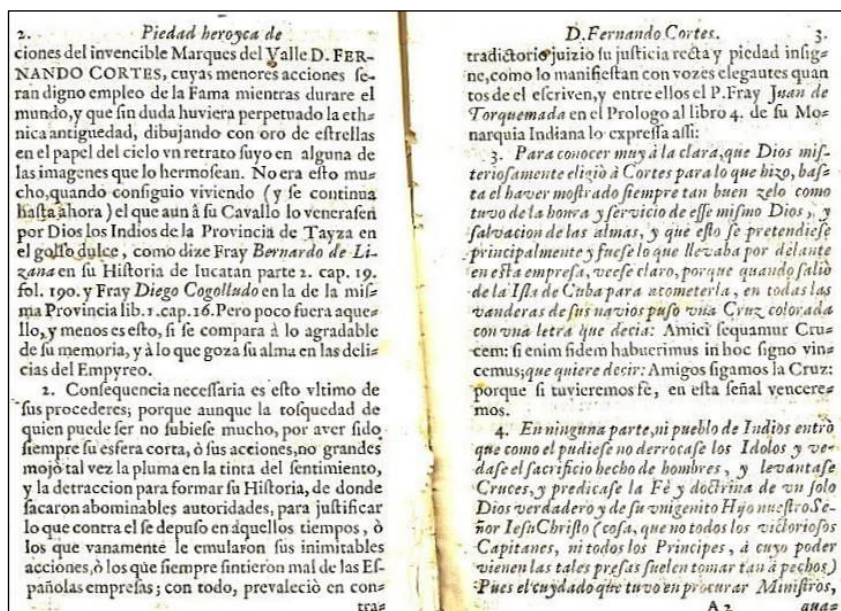 2. Piedad heroyca de
ciones del invencible Marques del Valle D. FER-
NANDO CORTES, cuyas menores acciones se-
ran digno empleo de la Fama mientras durare el
mundo, y que sin duda huviera perpetuado la eth-
nica antiguedad, dibujando con oro de estrellas
en el papel del cielo vn retrato suyo en alguna de
las imagenes que lo hermosean. No era esto mu-
cho, quando configuio viviendo (y se continua
hasta ahora) el que aun â su Cavallo lo venerasen
por Dios los Indios de la Provincia de Tayza en
el golfo dulce, como dize Fray Bernardo de Li-
zana en su Historia de Iucatan parte 2. cap. 19.
fol. 190. y Fray Diego Cogolludo en la de la mis-
ma Provincia lib. 1. cap. 16. Pero poco fuera aque-
llo, y menos es esto, si se compara à lo agradable
de su memoria, y à lo que goza su alma en las deli-
cias del Empyreo.
2. Consequencia necessaria es esto vltimo de
sus procederes; porque aunque la tosquedad de
quien puede ser no subiese mucho, por aver sido
siempre su esfera corta, ò sus acciones, no grandes
mojò tal vez la pluma en la tinta del sentimiento,
y la detraccion para formar su Historia, de donde
sacaron abominables autoridades, para justificar
lo que contra el se depuso en aquellos tiempos, ò
los que vanamente le emularon sus inimitables
acciones, ò los que siempre sintieron mal de las Es-
pañolas empresas; con todo, prevaleciò en con-
tra-
D. Fernando Cortes. 3.
tradictorio juizio su justicia recta y piedad insig-
ne, como lo manifiestan con vozes elegautes quan
tos de el escriven, y entre ellos el P. Fray Juan de
Torquemada en el Prologo al libro 4. de su Mo-
narquia Indiana lo expressa assi:
3. Para conocer muy à la clara, que Dios mis-
teriosamente eligiò à Cortes para lo que hizo, bas-
ta el haver mostrado siempre tan buen zelo como
tuvo de la honra y servicio de esse mismo Dios, y
salvacion de las almas, y que esto se pretendiese
principalmente y fuese lo que llevaba por delante
en esta empresa, veese claro, porque quando saliò
de la Isla de Cuba para acometerla, en todas las
vanderas de sus navios puso vna Cruz colorada
con vna letra que decia: Amici sequamur Cru-
cem: si enim fidem habuerimus in hoc signo vin-
cemus; que quiere decir: Amigos sigamos la Cruz:
porque si tuvieremos fè, en esta señal vencere-
mos.
4. En ninguna parte, ni pueblo de Indios entrò
que como el pudiese no derrocase los Idolos y ve-
dase el sacrificio hecho de hombres, y levantase
Cruces, y predicase la Fè y doctrina de vn solo
Dios verdadero y de su vnigenito Hijo nuestro Se-
ñor Iesu Christo (cosa, que no todos los victoriosos
Capitanes, ni todos los Principes, à cuyo poder
vienen las tales presas suelen tomar tan à pechos)
Pues el cuydado que tuvo en procurar Ministros,
A 2 qua-